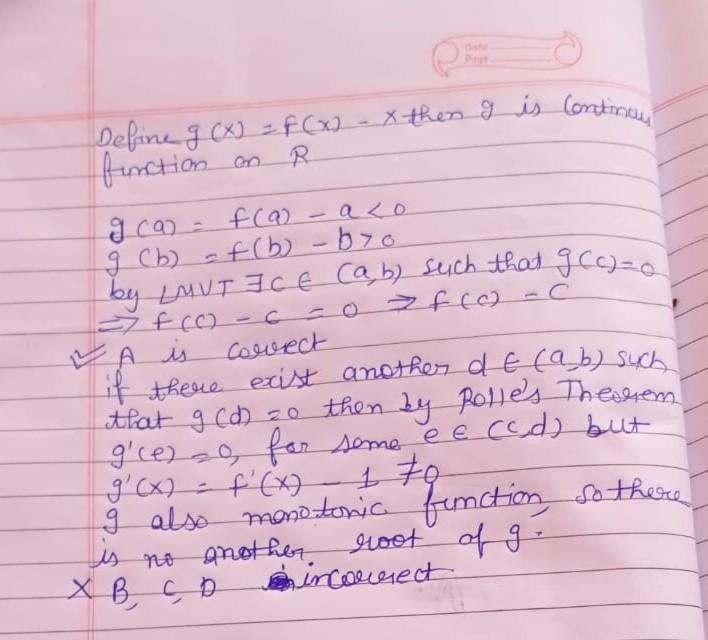 Date
Page
Define g(x) = f(x) - x then g is Continous
function on R
g(a) = f(a) - a < 0
g(b) = f(b) - b > 0
by LMVT ∃ c ∈ (a,b) such that g(c)=0
⇒ f(c) - c = 0 ⇒ f(c) - C
✓ A is correct
if there exist another d ∈ (a,b) such
that g(d) = 0 then by Rolle's Theorem
g'(e) = 0, for some e ∈ (c,d) but
g'(x) = f'(x) - 1 ≠ 0
g also monotonic function, so there
is no another root of g.
X B, C, D incorrect